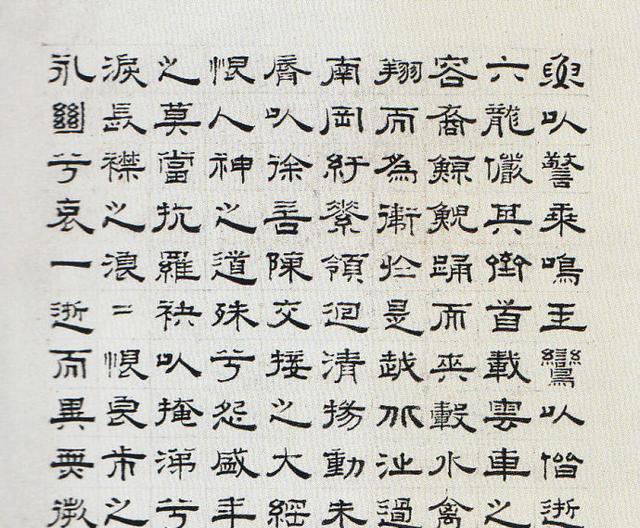 魚以警乘鳴玉鸞以偕逝
六龍儼其首載雲車之
容裔鯨鯢踊而夾轂水禽
翔而為衛於是越北沚過
南岡紆素領迴清揚動朱
脣以徐言陳交接之大經
恨人神之道殊兮怨盛年
之莫當抗羅袂以掩涕兮
淚長襟之浪二恨良市之
永𢇍兮哀一逝而異無微